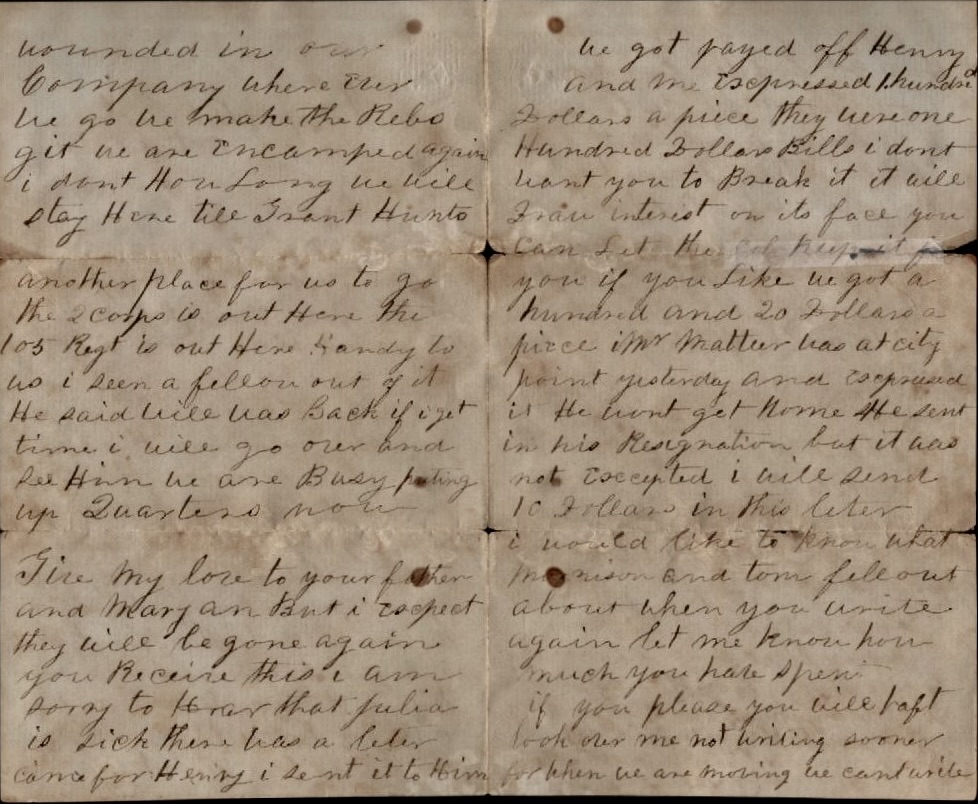 wounded in our
Company where ever
we go we make the Rebs
git we are Encamped again
i dont How Long we will
stay Here till Grant Hunts
another place for us to go
the 2 corps is out Here the
105 Regt is out Here Handy to
us i seen a fellow out of it
He said will was Back if i get
time i will go over and
see Him we are Busy puting
up Quarters now
Give my love to your father
and Mary an But i Exspect
they will be gone again
you Receive this i am
sorry to Hear that julia
is sick there was a leter
came for Henry i sent it to Him
we got payed off Henry
and me Exspressed 1 hundred
Dollars a piece they were one
Hundred Dollars Bills i dont
want you to Break it it will
Draw interest on its face you
can Let the keep it
you if you Like we got a
hundred and 20 Dollars a
piece Mr Matteer was at city
point yesterday and Exspressed
it He wont get home He sent
in his Resignation but it was
not Excepted i will send
10 Dollars in this leter
i would like to know what
and tom fell out
about when you write
again let me know how
much you have spent
if you please you will
look over me not writing sooner
for when we are moving we cant write